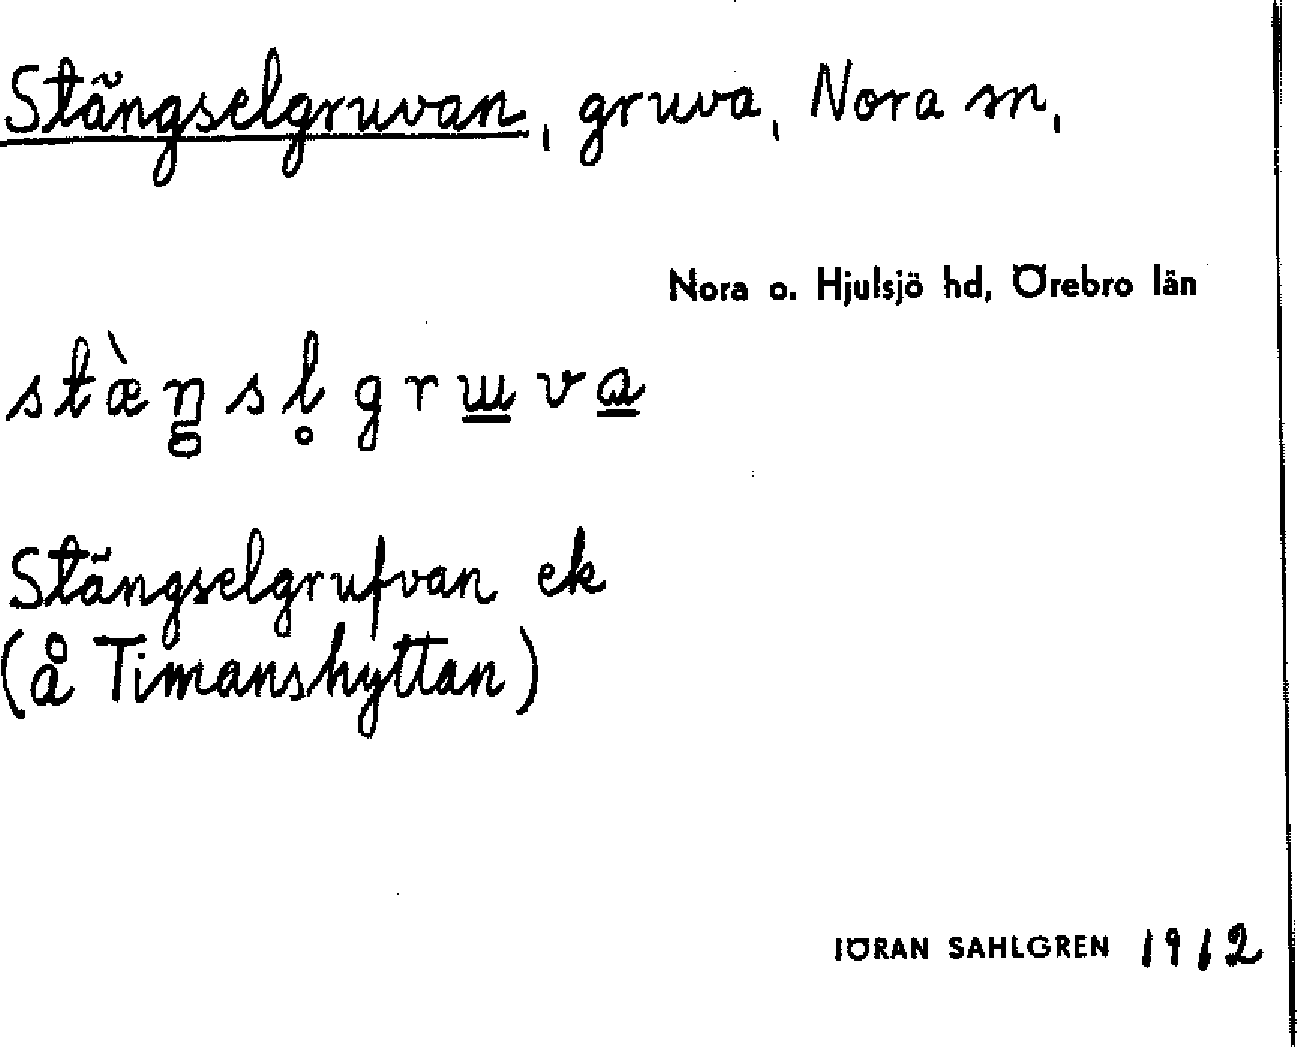 Stängselgruvan, gruva, Nora sn,
Nora o. Hjulsjö hd, Örebro län
stæ̀ŋsl̥grɯva
Stängselgrufvan ek
(å Timanshyttan)
JÖRAN SAHLGREN 1912